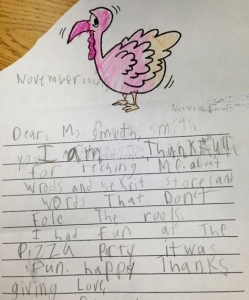 November
Dear, Ms. Smith
I am Thankfull
for teching Me. about
Words and sekrit storeis and
words That Donet
Fole The rools.
I had Fun at The
Pizza Party it was
Fun. happy Thanks
giving Love,